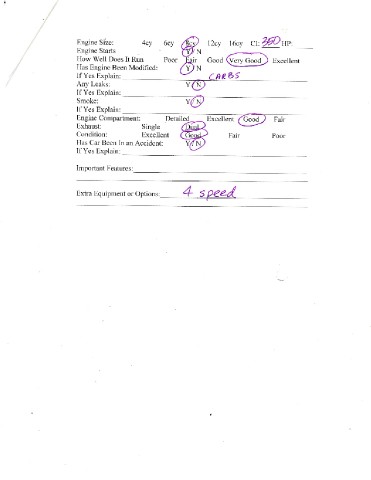 Engine Size: 4cy 6cy 8cy 12cy 16cy CI: 350 HP:
Engine Starts Y N
How Well Does It Run Poor Fair Good Very Good Excellent
Has Engine Been Modified: Y N
If Yes Explain: CARBS
Any Leaks: Y N
If Yes Explain:
Smoke: Y N
If Yes Explain:
Engine Compartment: Detailed Excellent Good Fair
Exhaust: Single Dual
Condition: Excellent Good Fair Poor
Has Car Been In an Accident: Y N
If Yes Explain:
Important Features:
Extra Equipment or Options: 4 speed